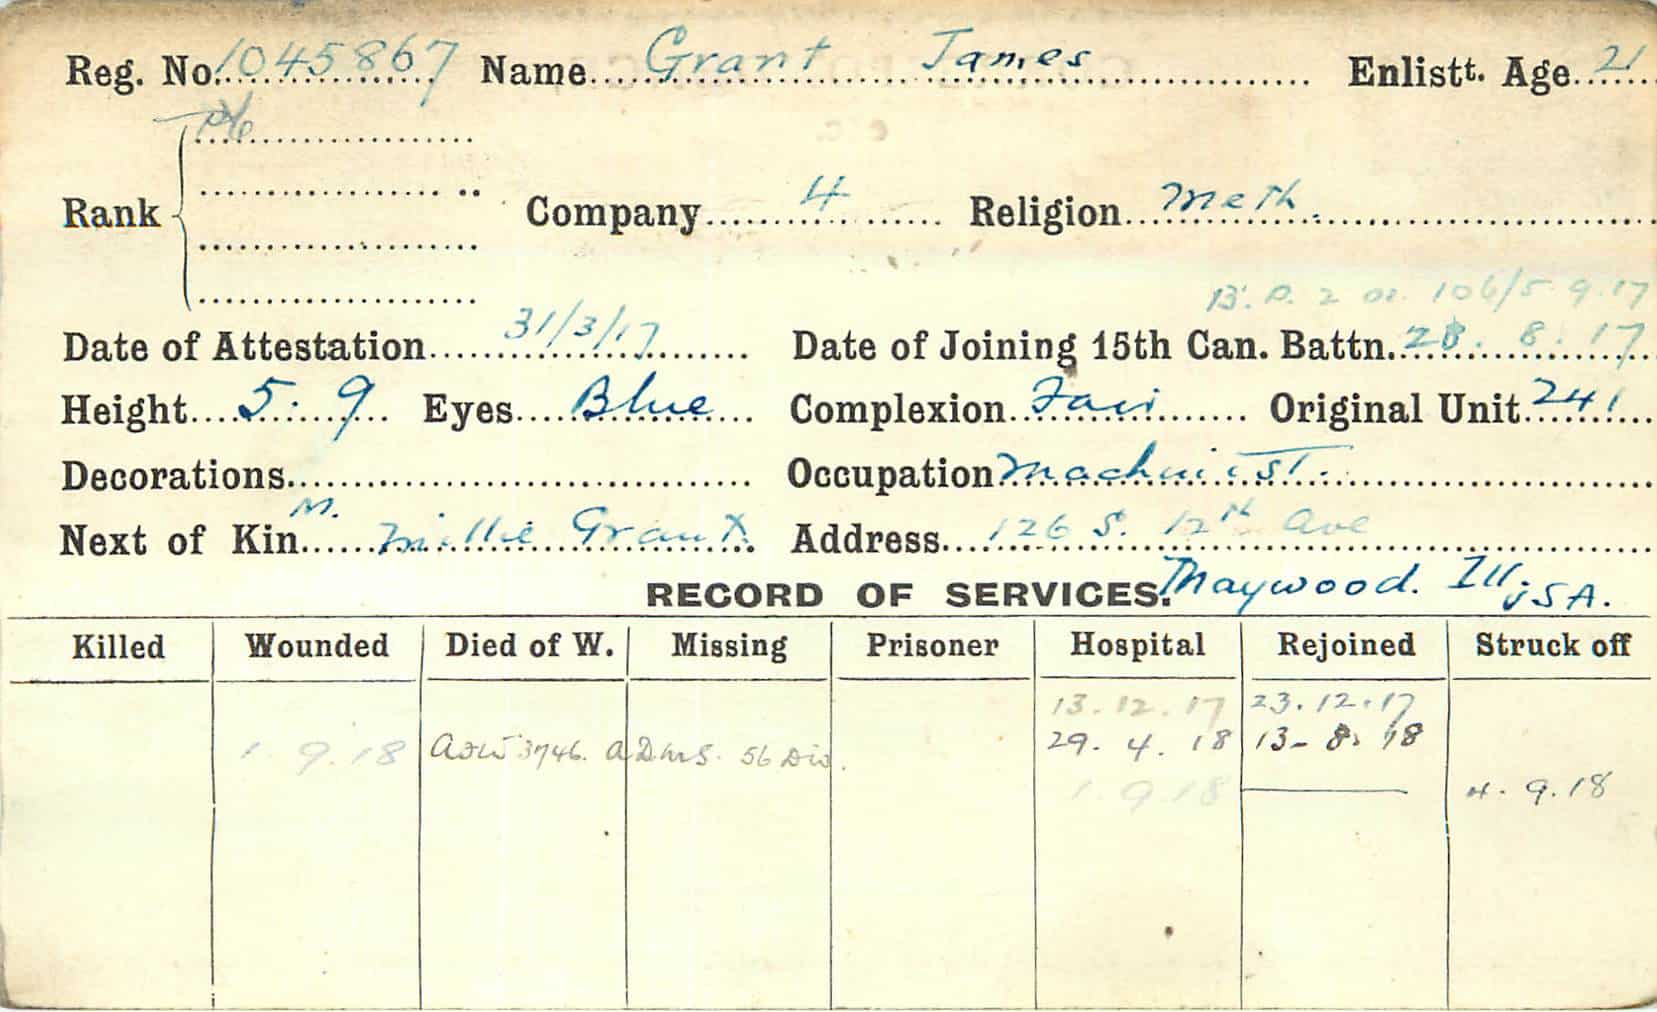 Reg. No. 1045867 Name Grant James Enlistt. Age 21
Pte
Rank Company 4 Religion Meth.
B. P. 2 or. 106/5 9.17
Date of Attestation 31/3/17 Date of Joining 15th Can. Battn. 28. 8. 17
Height 5. 9 Eyes Blue Complexion Fair Original Unit 241
Decorations Occupation Machinist.
M.
Next of Kin Millie Grant. Address 126 S. 12th Ave
RECORD OF SERVICES. Maywood. Ill. USA.
Killed Wounded Died of W. Missing Prisoner Hospital Rejoined Struck off
13. 12. 17 23. 12. 17
1. 9. 18 3746. ADMS. 56 Div. 29. 4. 18 13- 8. 18
1. 9. 18 4. 9. 18